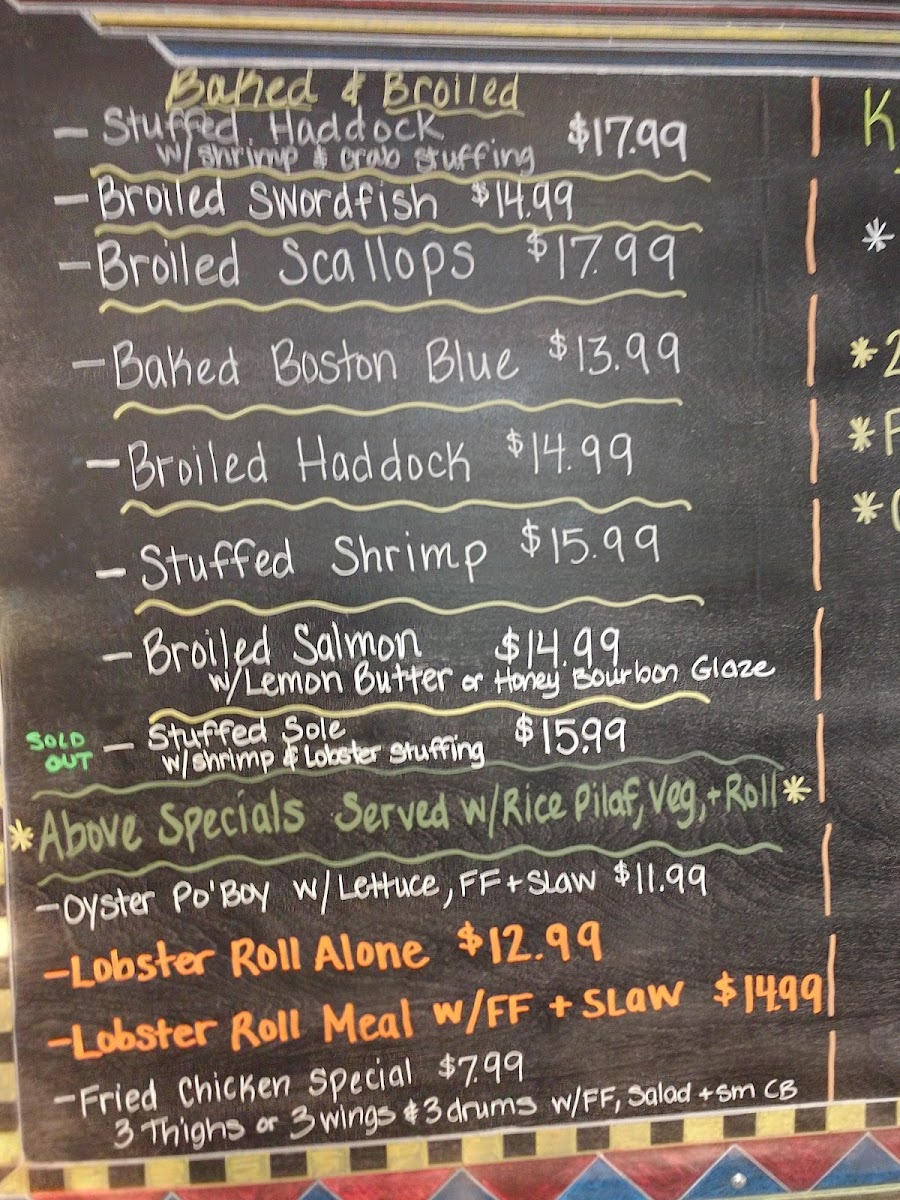 Baked & Broiled
- Stuffed Haddock $17.99
w/ shrimp & crab stuffing
- Broiled Swordfish $14.99
- Broiled Scallops $17.99
- Baked Boston Blue $13.99
- Broiled Haddock $14.99
- Stuffed Shrimp $15.99
- Broiled Salmon $14.99
w/Lemon Butter or Honey Bourbon Glaze
SOLD OUT - Stuffed Sole $15.99
w/shrimp & Lobster stuffing
*Above Specials Served w/Rice Pilaf, Veg, + Roll*
- Oyster Po'Boy w/Lettuce, FF + SLAW $11.99
- Lobster Roll Alone $12.99
- Lobster Roll Meal w/FF + SLAW $14.99
- Fried Chicken Special $7.99
3 Thighs or 3 wings & 3 drums w/FF, Salad + sm CB
K
*
*2
*
*